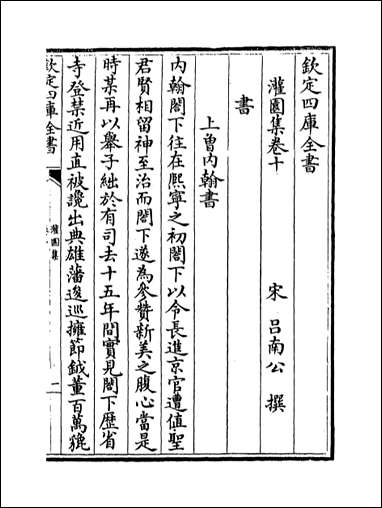 欽定四庫全書
灌園集卷十
宋 呂南公 撰
書
上曽内翰書
内翰閤下往在熙寧之初閤下以令長進京官遭值聖
君賢相留神至治而閤下遂為參賛新美之腹心當是
時某再以舉子絀於有司去十五年間實見閤下歴省
寺登禁近用直被讒出典雄藩逡巡擁節鉞董百萬貔
欽定四庫全書
灌園集